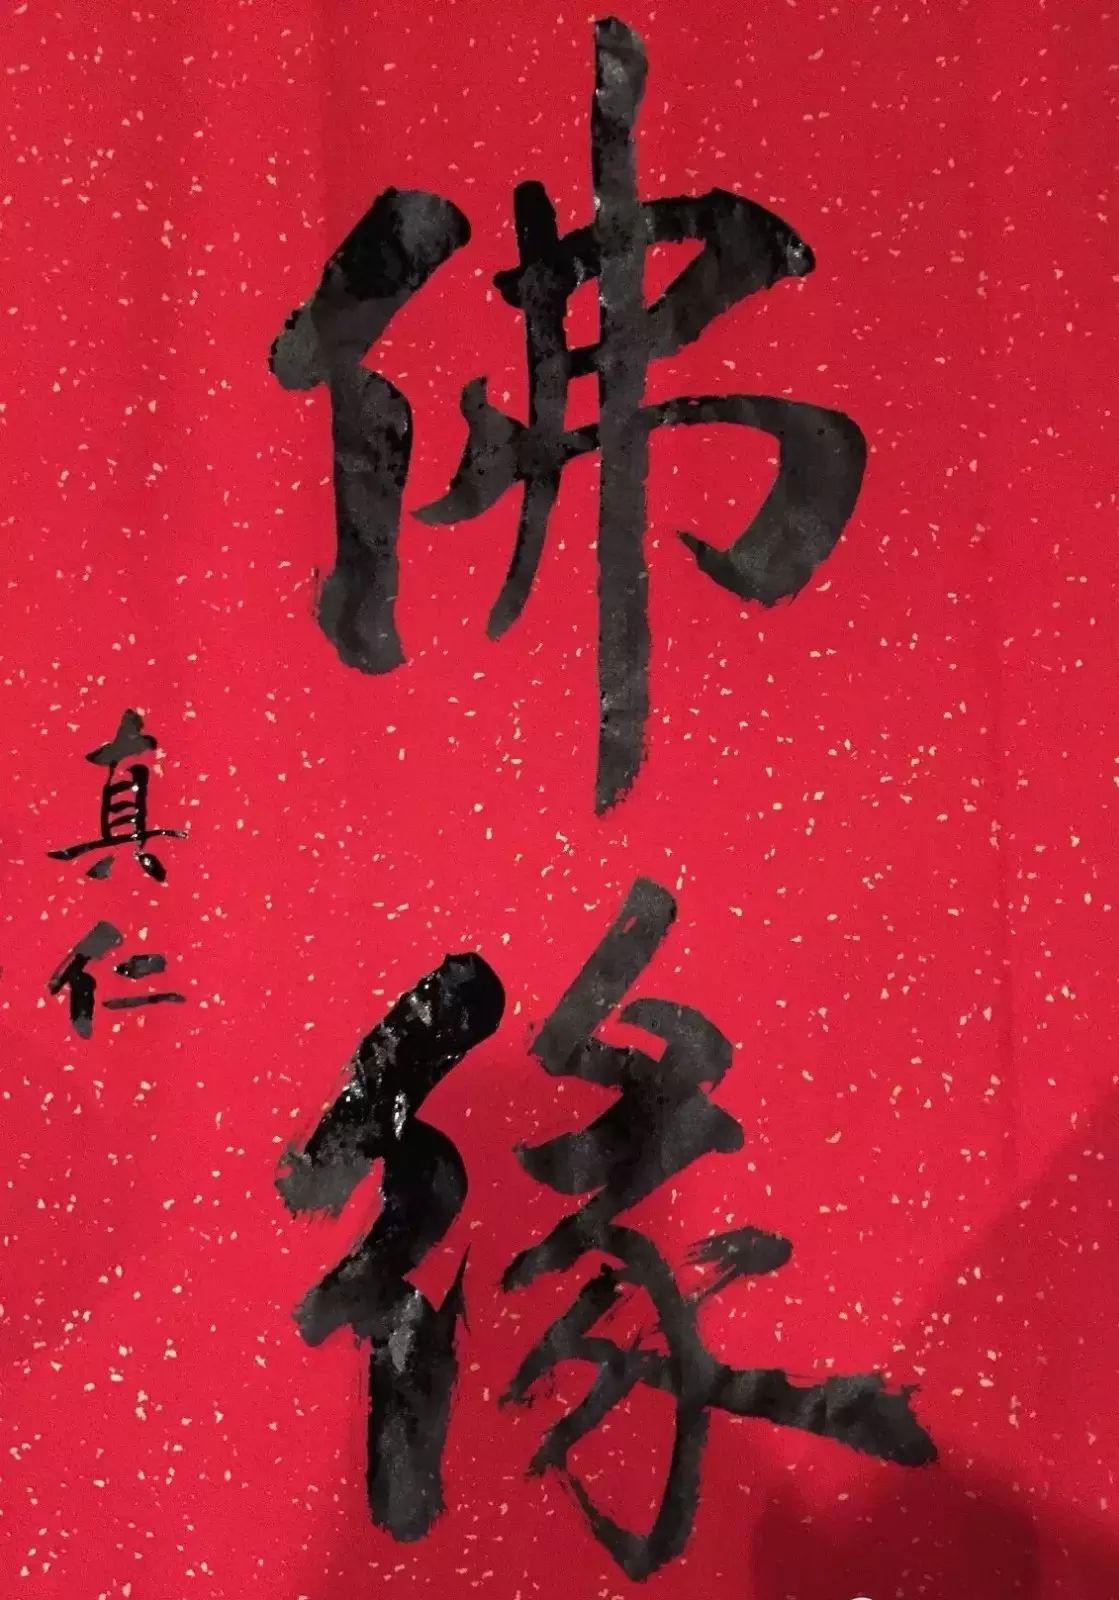 佛缘
真仁